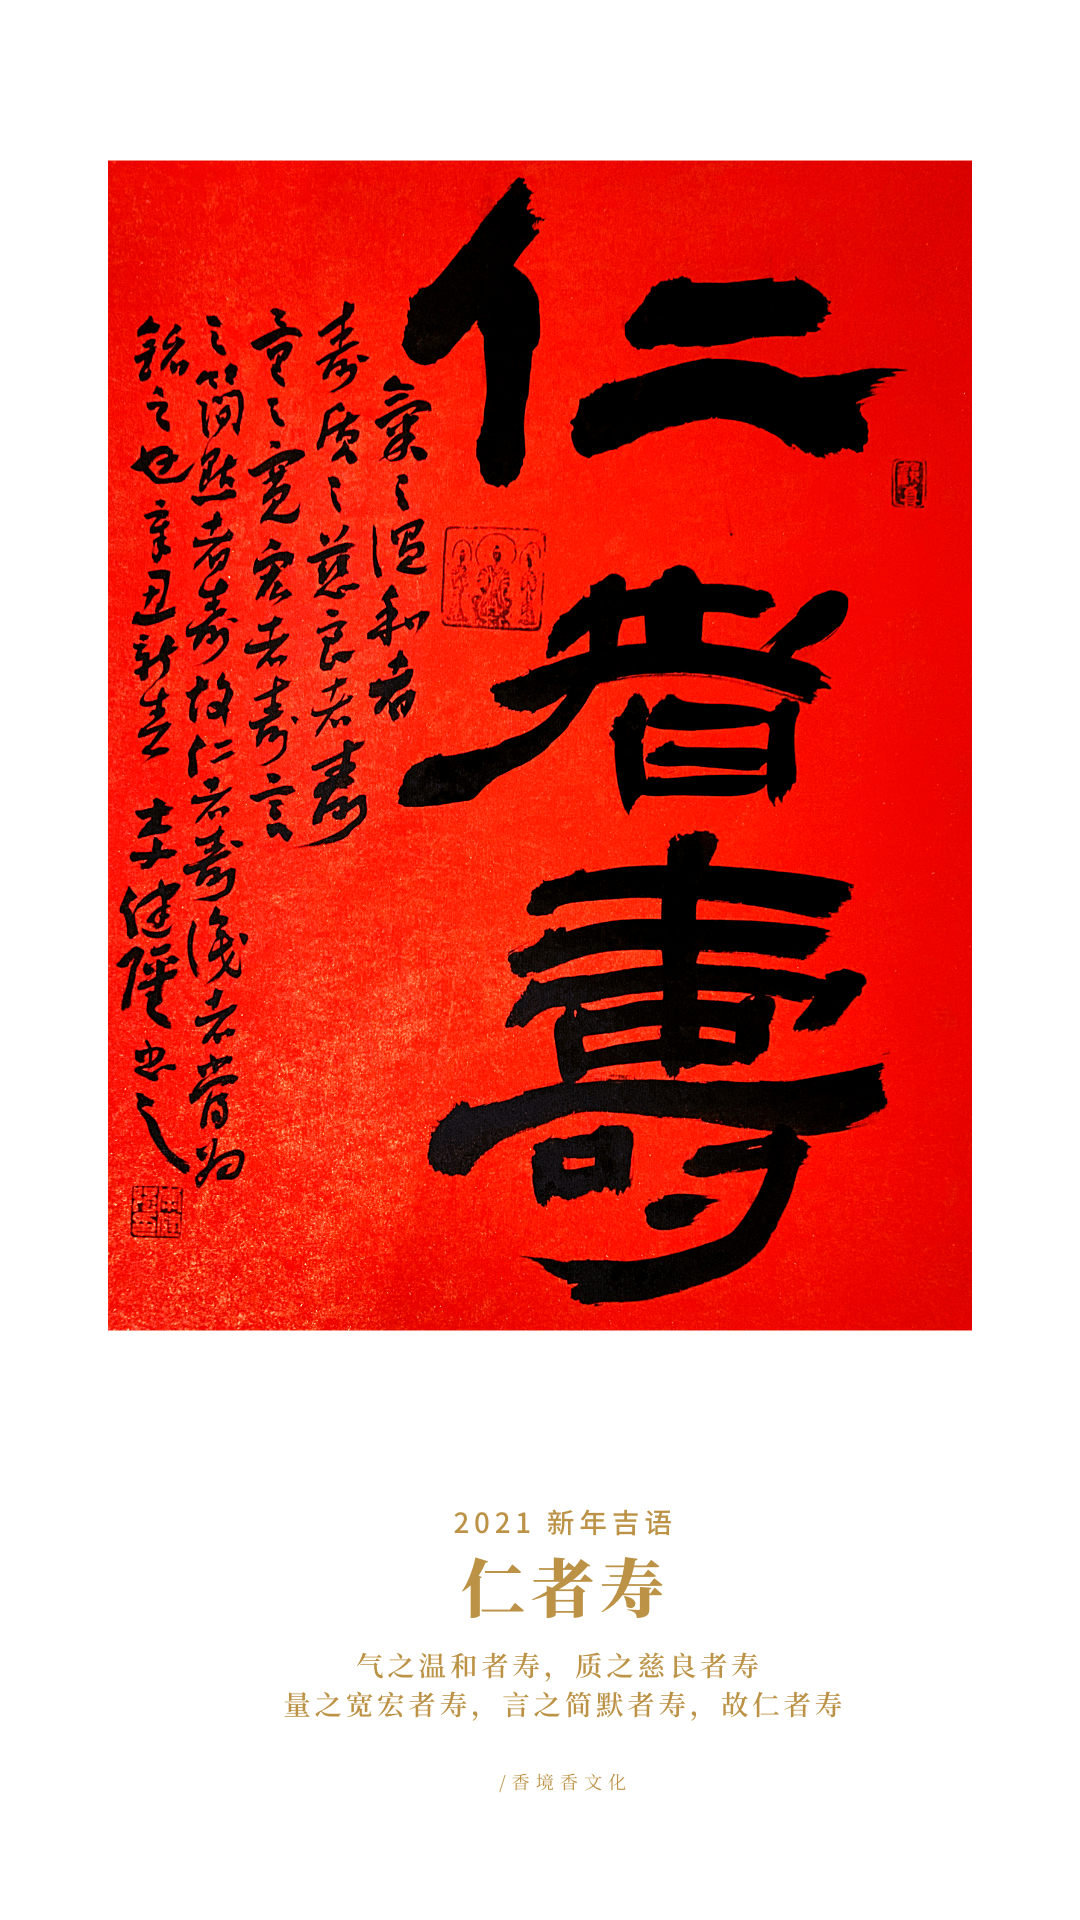 仁者壽
氣之溫和者
寿质之慈良者寿
量之宽宏者寿言
之简默者寿故仁者寿識者當為
銘之也辛丑新春 李健强書之
2021 新年吉语
仁者寿
气之温和者寿，质之慈良者寿
量之宽宏者寿，言之简默者寿，故仁者寿
/香境香文化